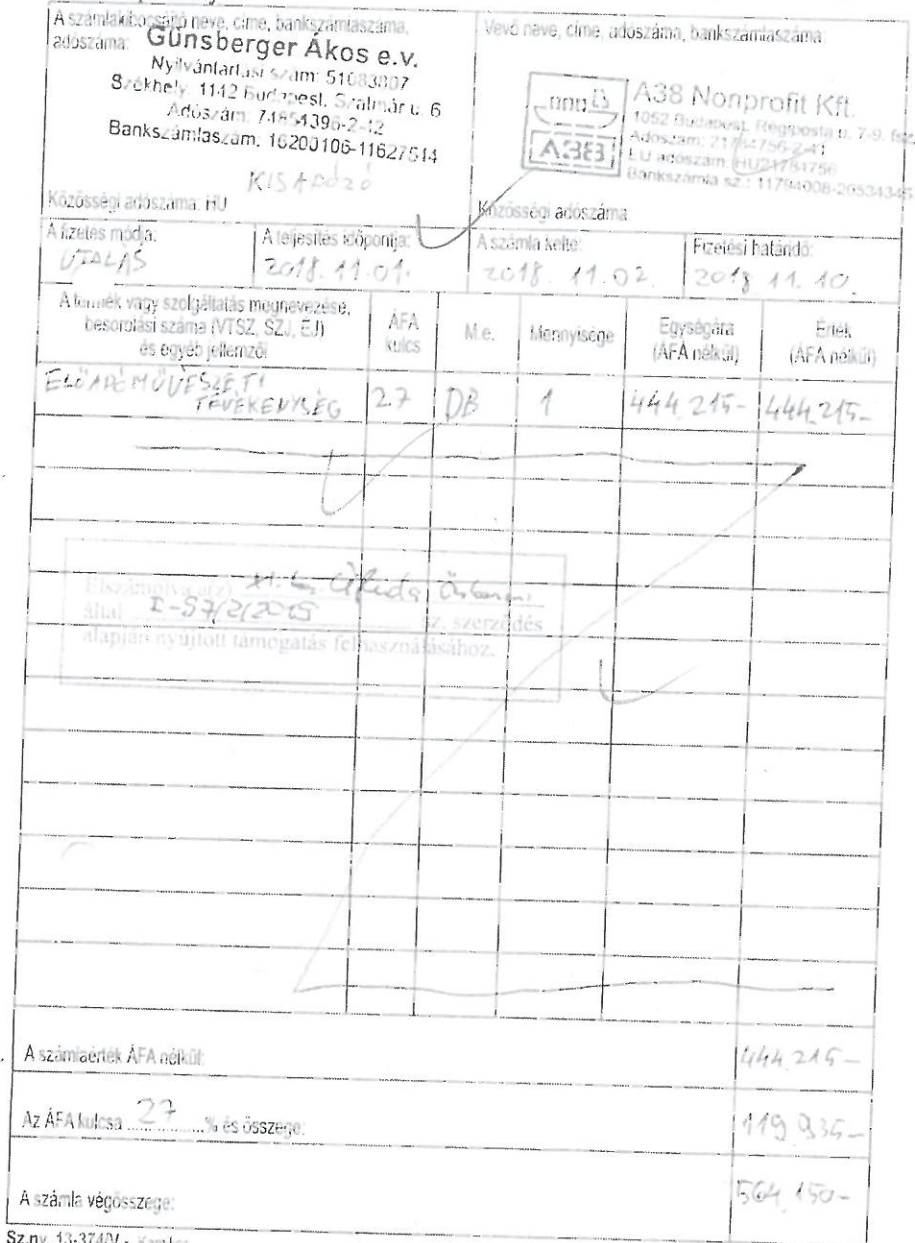 A számlakibocsátó neve, címe, bankszámlaszáma,
adószáma:
Günsberger Ákos e.v.
Nyilvántartási szám: 51083807
Székhely: 1142 Budapest, Szatmár u. 6
Adószám: 74854396-2-42
Bankszámlaszám: 16200106-11627514
KISADÓZÓ
Közösségi adószáma: HU
Vevő neve, címe, adószáma, bankszámlaszáma:
A38
A38 Nonprofit Kft.
1052 Budapest, Régiposta u. 7-9. fsz.
Adószám: 21784756-2-41
EU adószám: HU21784756
Bankszámla sz.: 11794008-20534345
Közösségi adószáma
A fizetés módja:
UTALÁS
A teljesítés időpontja:
2018. 11. 01.
A számla kelte:
2018. 11. 02.
Fizetési határidő:
2018 11. 10.
A termék vagy szolgáltatás megnevezése,
besorolási száma (VTSZ, SZJ, ÉJ)
és egyéb jellemzői
ÁFA
kulcs
M.e.
Mennyisége
Egységára
(ÁFA nélkül)
Érték
(ÁFA nélkül)
ELŐADÓMŰVÉSZETI
TEVÉKENYSÉG 27 DB 1 444.215- 444.215-
Elszámolva a(z)
által sz. szerződés
alapján nyújtott támogatás felhasználásához.
A számlaérték ÁFA nélkül: 444.215-
Az ÁFA kulcsa 27 % és összege: 119.935-
A számla végösszege: 564.150-
Sz.ny. 13-374/V -